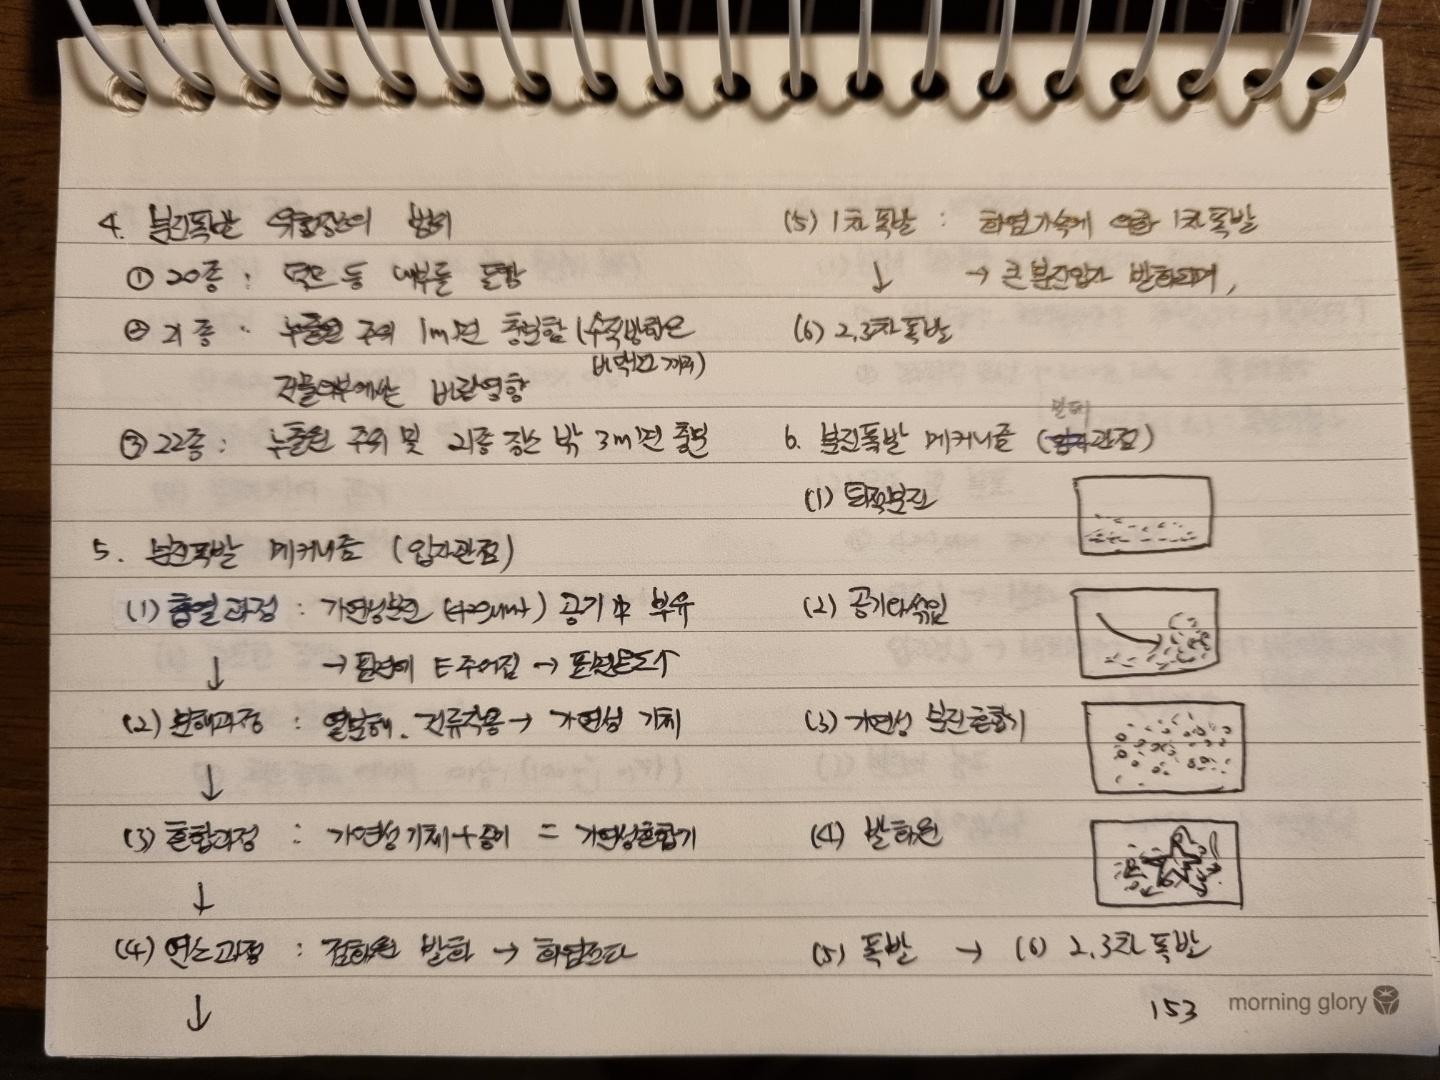 4. 분진폭발 위험장소의 범위
① 20종 : 덕트 등 내부를 포함
② 21종 : 누출원 주위 1m면 충분함 (수직방향은
바닥면까지)
건물외부에서는 바람영향
③ 22종 : 누출원 주위 및 21종 장소 밖 3m면 충분
5. 분진폭발 메커니즘 (입자관점)
(1) 흡열과정 : 가연성분진 공기 中 부유
↓ → 표면에 E 주어짐 → 표면온도↑
(2) 분해과정 : 열분해, 건류작용 → 가연성 기체
↓
(3) 혼합과정 : 가연성기체 + 공기 = 가연성혼합기
↓
(4) 연소과정 : 점화원 발화 → 화염
↓
(5) 1차폭발 : 화염가속에 의한 1차폭발
↓ → 큰 분진입자 발화되며,
(6) 2,3차폭발
6. 분진폭발 메커니즘 (관점)
(1) 퇴적분진
(2) 공기와 섞임
(3) 가연성 분진혼합기
(4) 발화원
(5) 폭발 → (6) 2,3차 폭발
153 morning glory